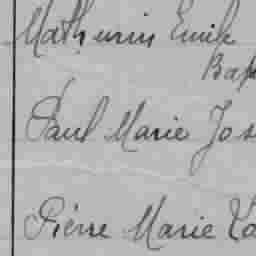 Mathurin Emile
Bap
Paul Marie Jos
Pierre Marie